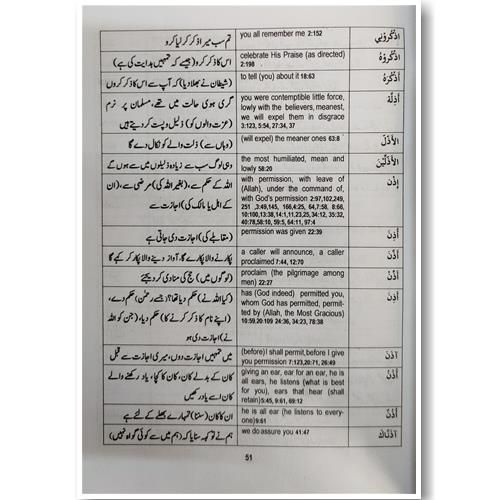 تم سب میرا ذکر کر لیا کرو you all remember me 2:152 اذْكُرُونِي
اس کا ذکر کرو (جیسے کہ تمہیں ہدایت کی ہے) celebrate His Praise (as directed) اذْكُرُوهُ
2:198
(شیطان نے بھلا دیا) کہ آپ سے اس کا ذکر کروں to tell (you) about it 18:63 أَذْكُرَهُ
گری ہوی حالت میں تھے، مسلمان پر نرم you were contemptible little force, أَذِلَّة
(عزت والوں کو) ذلیل و پست کر دیتے ہیں lowly with the believers, meanest,
we will expel them in disgrace
3:123, 5:54, 27:34, 37
(وہاں سے) ذلت والے کو نکال دے گا (will expel) the meaner ones 63:8 الأَذَلَّ
وہی لوگ سب سے زیادہ ذلیلوں میں سے ہوں گے the most humiliated, mean and الأَذَلِّينَ
lowly 58:20
اللہ کے حکم سے، (بغیر اللہ کی) مرضی سے، (ان with permission, with leave of إِذْن
کے اہل یا مالک کی) اجازت سے (Allah), under the command of,
with God's permission 2:97,102,249,
251 ,3:49,145, 166,4:25, 64,7:58, 8:66,
10:100,13:38,14:1,11,23,25, 34:12, 35:32,
40:78,58:10, 59:5, 64:11, 97:4
(مقابلے کی) اجازت دی جاتی ہے permission was given 22:39 أُذِنَ
پکارنے والا پکارے گا، آواز دینے والا پکار کر کہے گا a caller will announce, a caller أَذَّنَ
proclaimed 7:44, 12:70
(لوگوں میں) حج کی منادی کر دیجئے proclaim (the pilgrimage among أَذِّنْ
men) 22:27
(کیا اللہ نے) حکم دیا تھا؟ (جسے رحمٰن) حکم دے، has (God indeed) permitted you, أَذِنَ
(اپنے نام کا ذکر کرنے کا) حکم دیا، (جن کو اللہ whom God has permitted, permit-
نے) اجازت دی ہو ted by (Allah, the Most Gracious)
10:59,20:109 24:36, 34:23, 78:38
میں تمہیں اجازت دوں، میری اجازت سے قبل (before)I shall permit,before I give آذَنَ
you permission 7:123,20:71, 26:49
کان کے بدلے کان، کان کا کچا، یاد رکھنے والے giving an ear, ear for an ear, he is أُذُنٌ
کان اسے یاد رکھیں all ears, he listens (what is best
for you), ears that hear (shall
retain)5:45, 9:61, 69:12
ان کا کان (سننا) تمہارے بھلے کے لئے ہے he is all ear (he listens to every- أُذُنُ
one)9:61
ہم نے تو کہہ سنایا کہ (ہم میں سے کوئی گواہ نہیں) we do assure you 41:47 آذَنَّاكَ
51